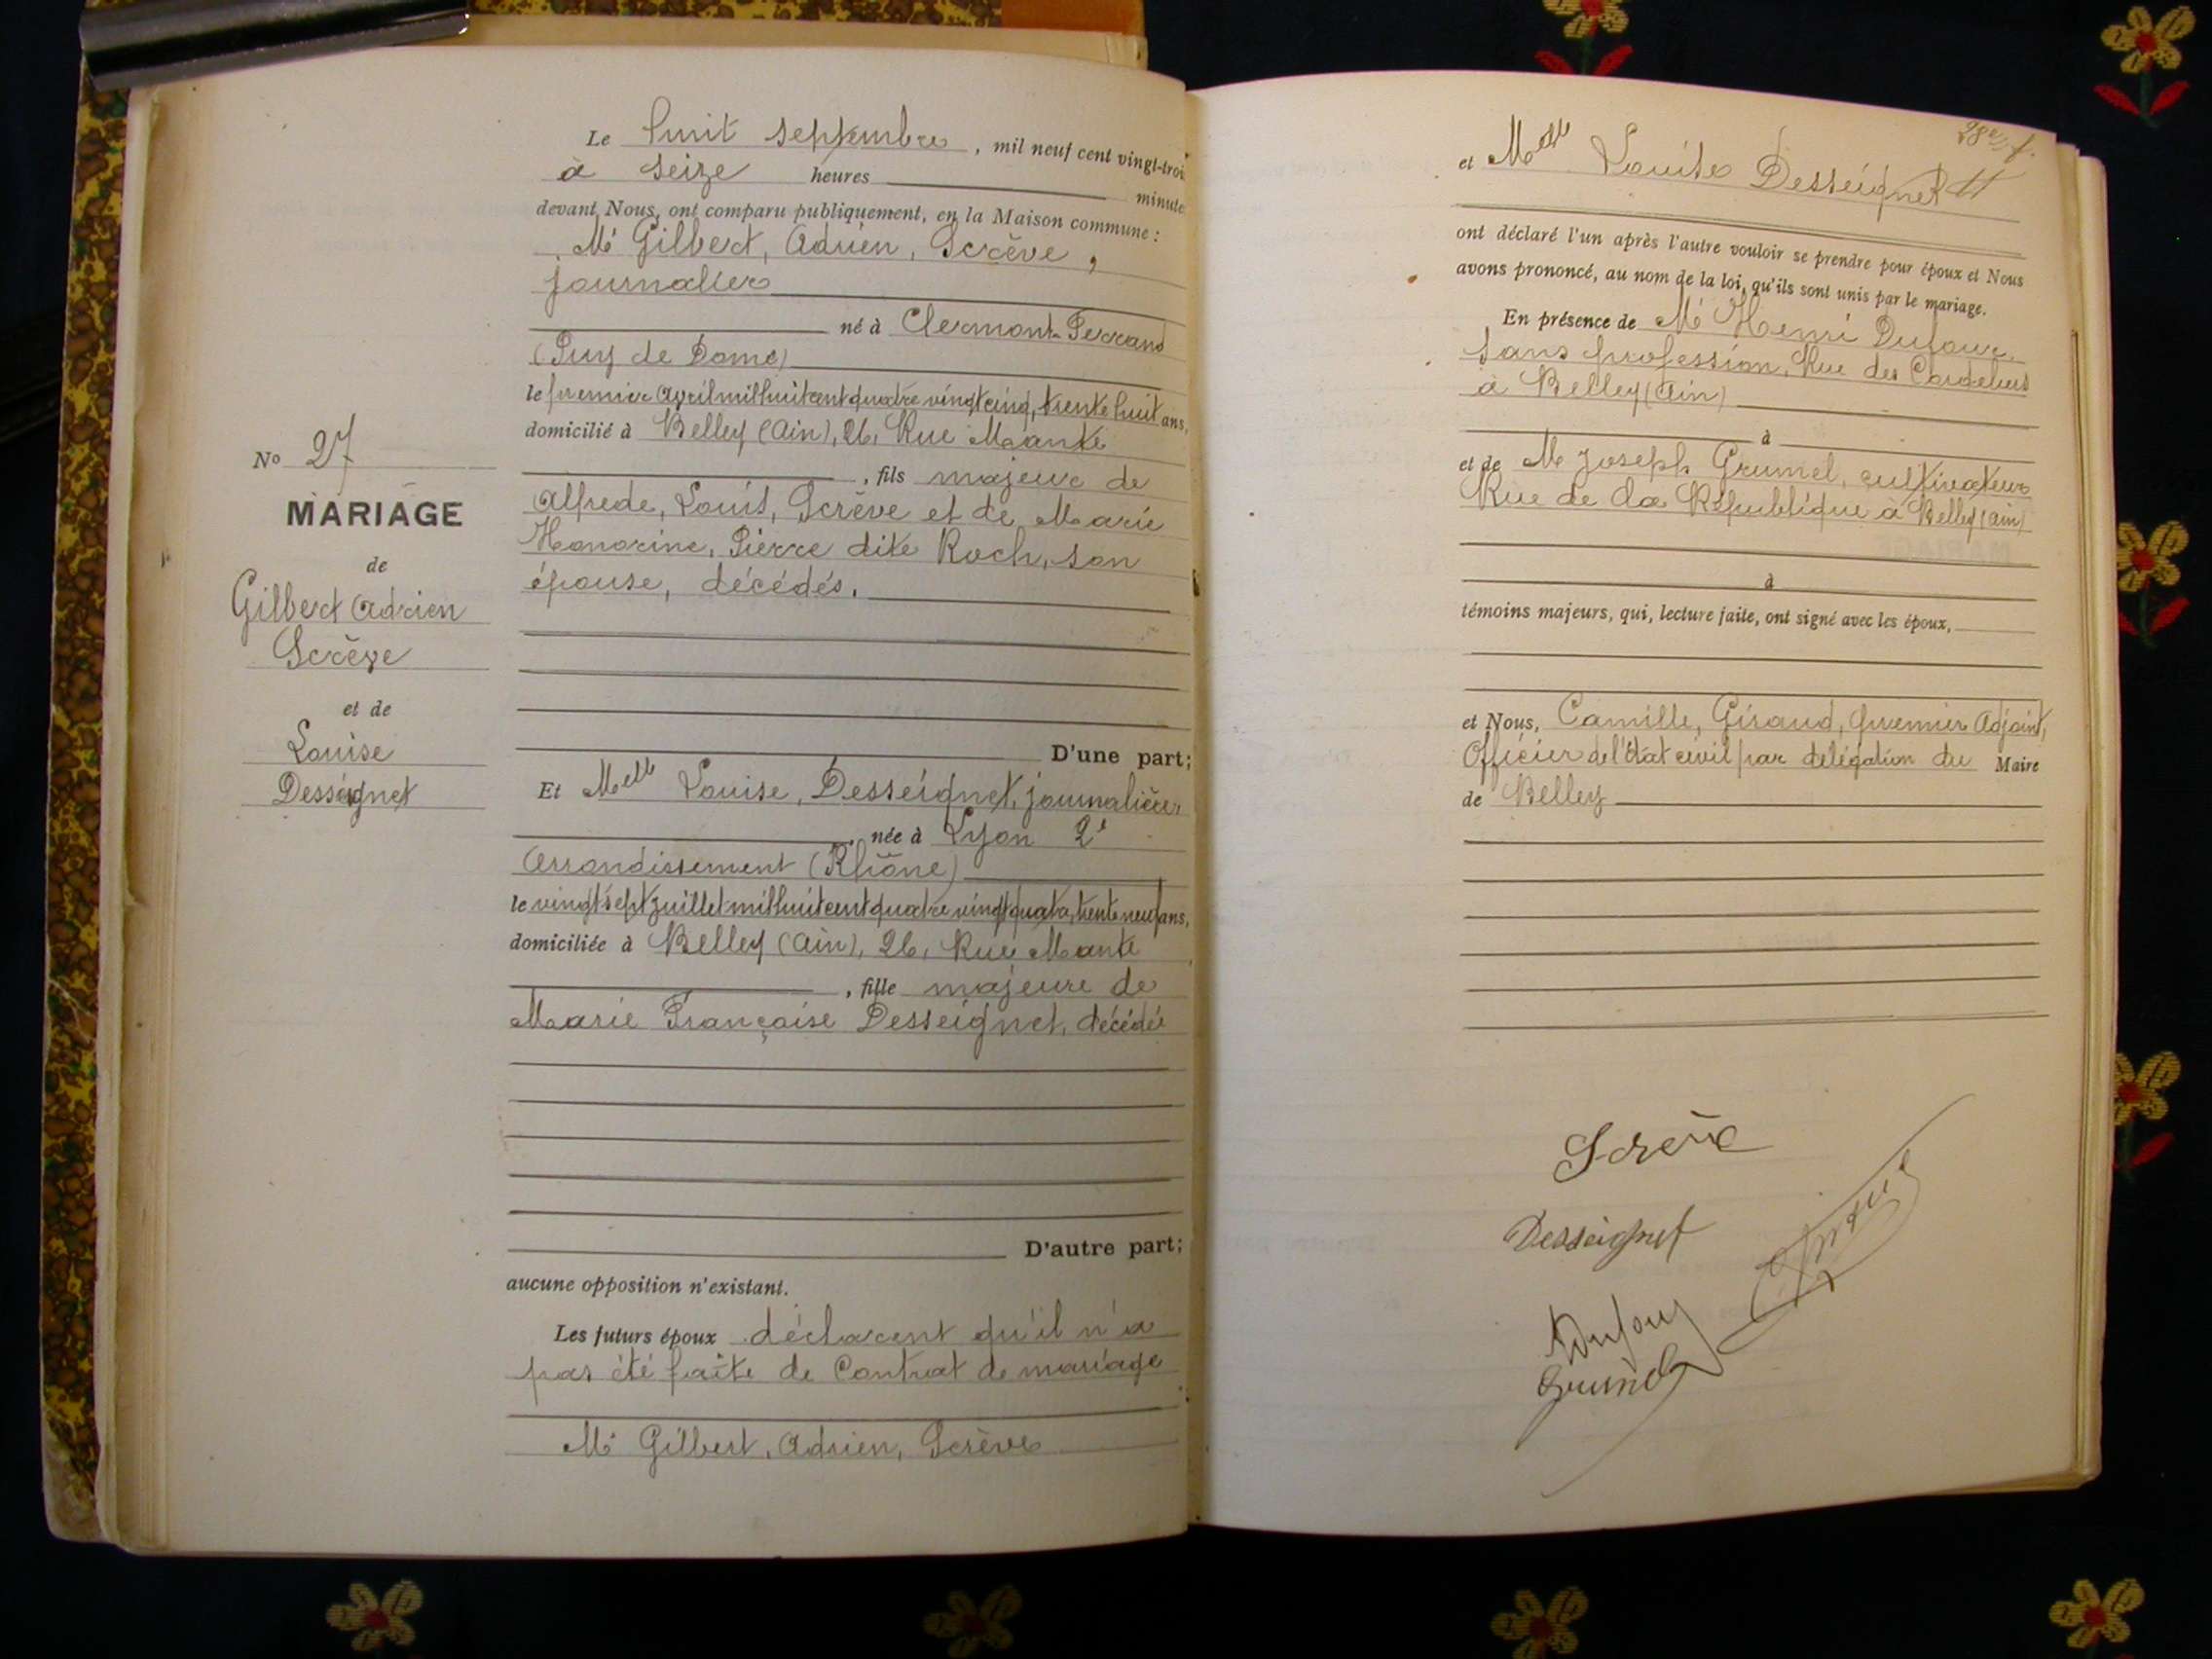 Le huit septembre, mil neuf cent vingt-trois
à seize heures minute
devant Nous, ont comparu publiquement, en la Maison commune :
Mr Gilbert, Adrien, Screve,
journalier
né à Clermont-Ferrand
(Puy de Dome)
le premier Avril mil huit cent quatre vingt cinq, trente huit ans,
domicilié à Belley (Ain), 26, Rue Mante
, fils majeur de
Alfrede, Louis, Scrève et de Marie
Honorine, Pierre dite Roch, son
épouse, décédés.
D'une part;
No 27
MARIAGE
de
Gilbert Adrien
Scrève
et de
Louise
Desseignet
Et Melle Louise, Desseignet, journalière
, née à Lyon 2e
Arrondissement (Rhône)
le vingt sept juillet mil huit cent quatre vingt quatre, trente neuf ans,
domiciliée à Belley (Ain), 26, Rue Mante
, fille majeure de
Marie Française Desseignet, décédée
D'autre part;
aucune opposition n'existant.
Les futurs époux déclarent qu'il n'a
pas été faite de Contrat de mariage
Mr Gilbert, Adrien, Scrève
et Melle Louise Desseignet
ont déclaré l'un après l'autre vouloir se prendre pour époux et Nous
avons prononcé, au nom de la loi, qu'ils sont unis par le mariage.
En présence de Mr Henri Dufour
sans profession, Rue des Cordeliers
à Belley (Ain)
à
et de M Joseph Grumel, cultivateur
Rue de la République à Belley (Ain)
à
témoins majeurs, qui, lecture faite, ont signé avec les époux,
et Nous, Camille, Giraud, premier Adjoint,
Officier de l'État civil par délégation du Maire
de Belley
Scrève
Desseignet
Dufour
Grumel